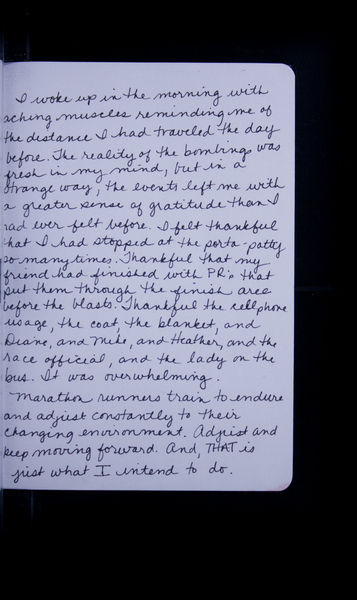 I woke up in the morning with
aching muscles reminding me of
the distance I had traveled the day
before. The reality of the bombings was
fresh in my mind, but in a
strange way, the events left me with
a greater sense of gratitude than I
had ever felt before. I felt thankful
that I had stopped at the porta-potty
so many times. Thankful that my
friend had finished with PR's that
put them through the finish area
before the blasts. Thankful the cellphone
usage, the coat, the blanket, and
Diane, and Mike, and Heather, and the
race official, and the lady on the
bus. It was overwhelming.
Marathon runners train to endure
and adjust constantly to their
changing environment. Adjust and
keep moving forward. And, THAT is
just what I intend to do.